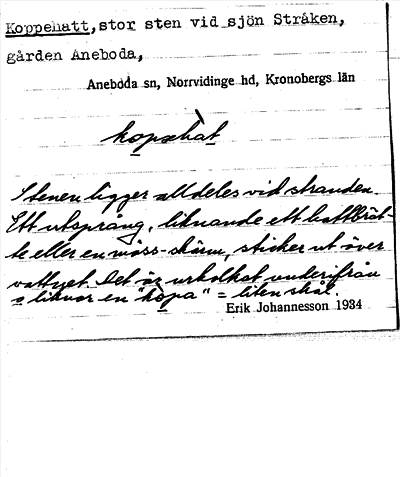 Koppehatt, stor sten vid sjön Stråken,
gården Aneboda,
Aneboda sn, Norrvidinge hd, Kronobergs län
kopæhàt
Stenen ligger alldeles vid stranden.
Ett utsprång, liknande ett hattbrät-
te eller en möss-skärm, sticker ut över
vattnet. Det är urholkat underifrån
o liknar en "kopa" = liten skål.
Erik Johannesson 1934